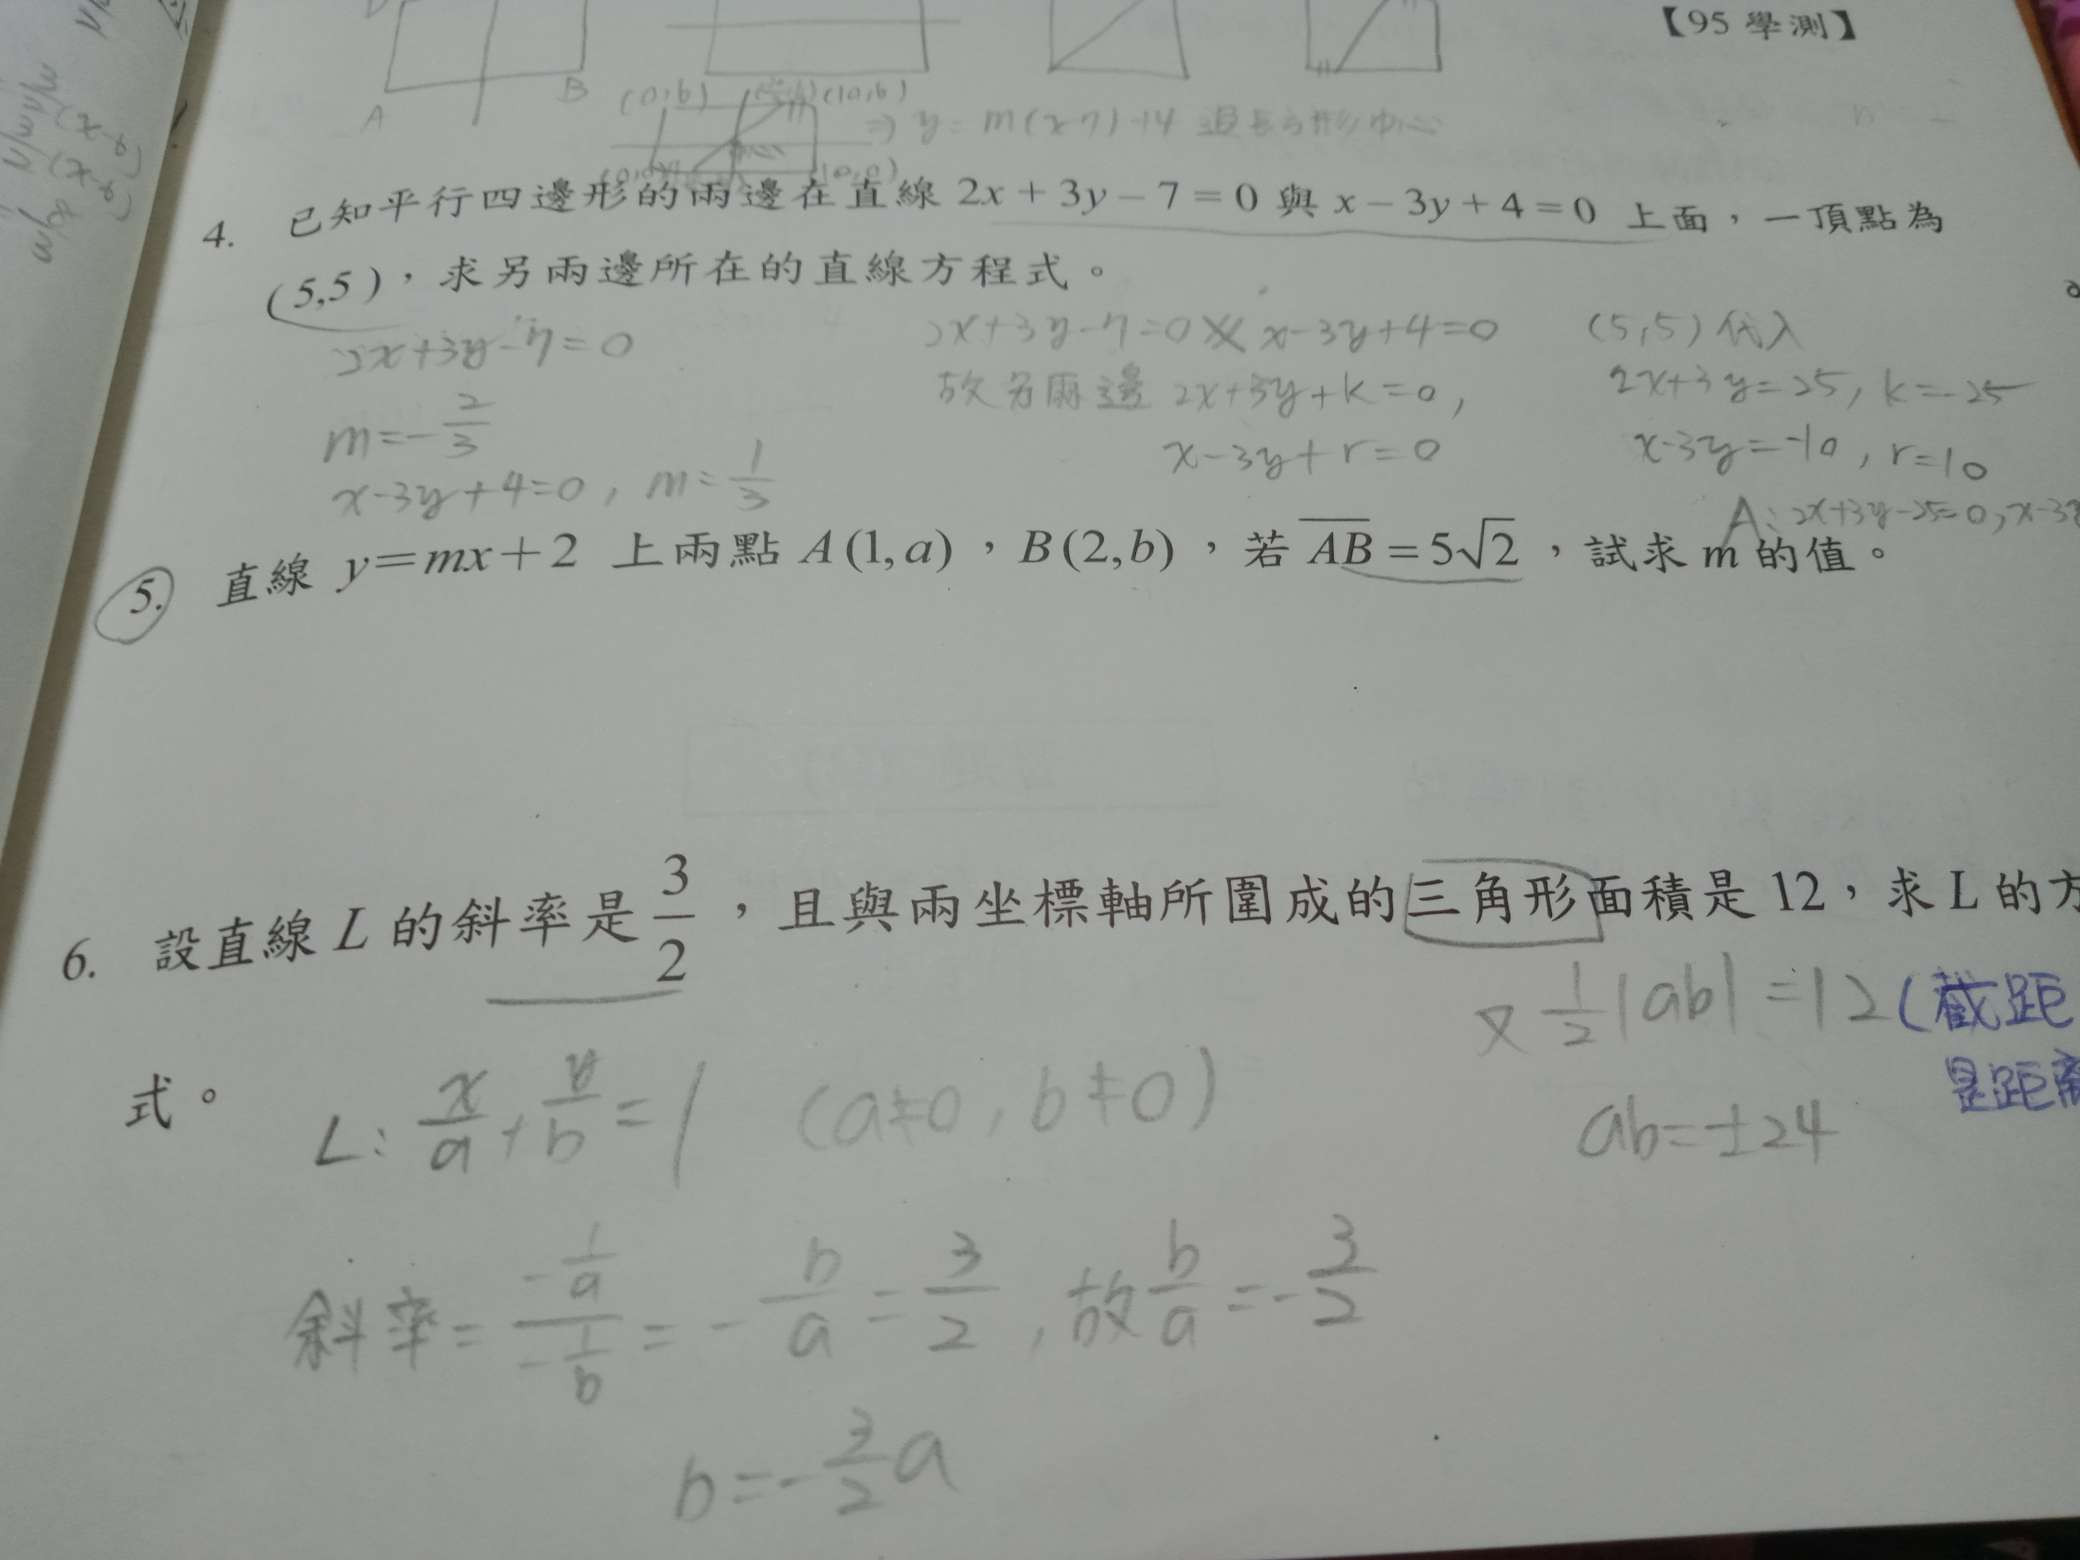 【95 學測】
A B (0,b) (10,b)
⇒ y = m(x-7)+4 過長方形中心
(10,0)
4. 已知平行四邊形的兩邊在直線 2x + 3y − 7 = 0 與 x − 3y + 4 = 0 上面，一頂點為
(5,5)，求另兩邊所在的直線方程式。
2x+3y-7=0
m=-2/3
x-3y+4=0, m=1/3
2x+3y-7=0 x-3y+4=0
故另兩邊 2x+3y+k=0,
x-3y+r=0
(5,5)代入
2x+3y=25, k=-25
x-3y=-10, r=10
A: 2x+3y-25=0, x-3y
5. 直線 y=mx+2 上兩點 A(1,a)，B(2,b)，若 \overline{AB} = 5√2，試求 m 的值。
6. 設直線 L 的斜率是 3/2，且與兩坐標軸所圍成的三角形面積是 12，求 L 的方
式。
L: x/a + y/b = 1 (a≠0, b≠0)
又 1/2|ab| = 12 (截距
是距離
ab=±24
斜率 = (-1/a)/(-1/b) = -b/a = 3/2, 故 b/a = -3/2
b=-3/2a